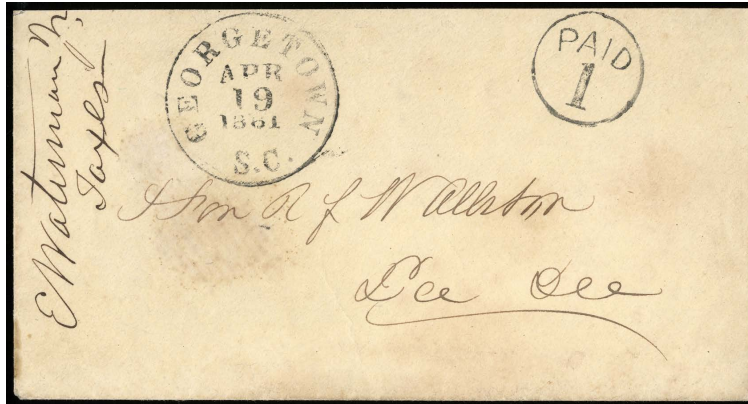 E Waterman
Taxes
GEORGETOWN
APR
19
1861
S.C.
PAID
1
Hon R f W Allston
Pee Dee